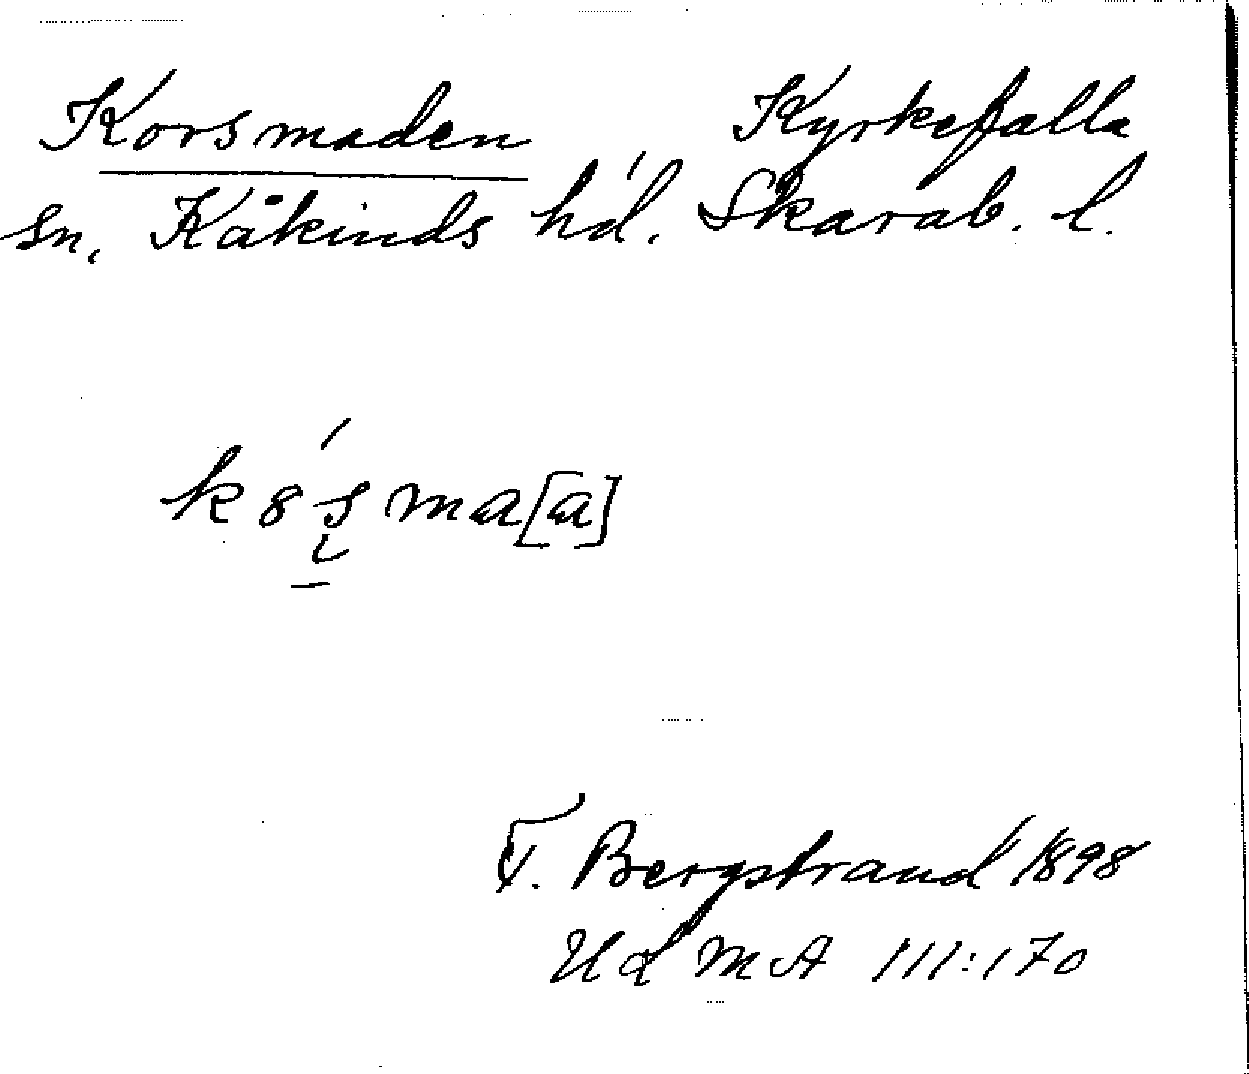 Korsmaden Kyrkefalla
sn. Kåkinds hd. Skarab. l.
k8ʂma[a]
T. Bergstrand 1898
ULMA 111:170